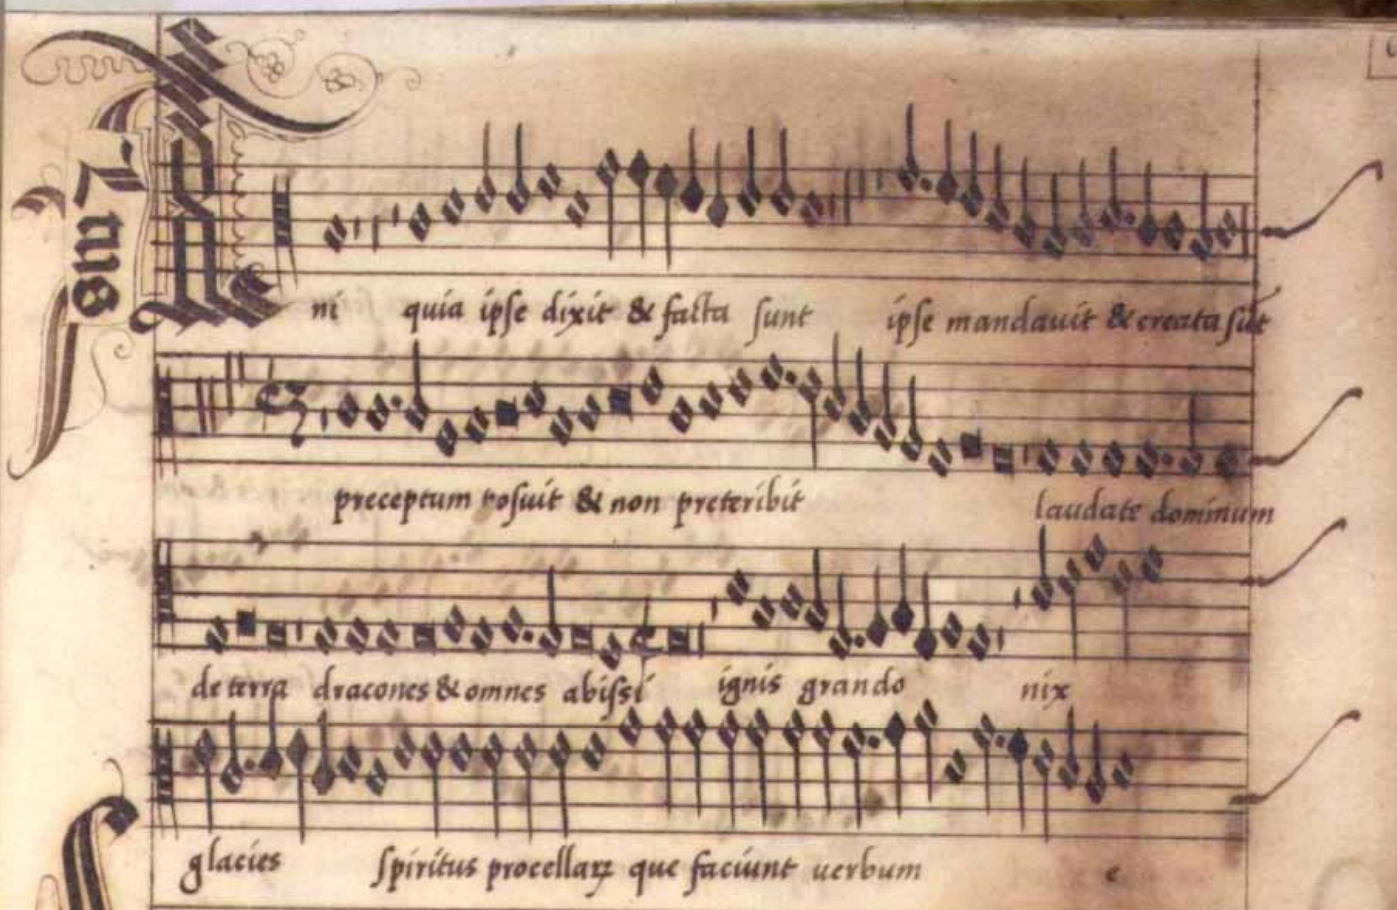 Bassus
ni quia ipse dixit & facta sunt ipse mandauit & creata sūt
preceptum posuit & non preteribit laudate dominum
de terra dracones & omnes abissi ignis grando nix
glacies spiritus procellarꝝ que faciunt uerbum e